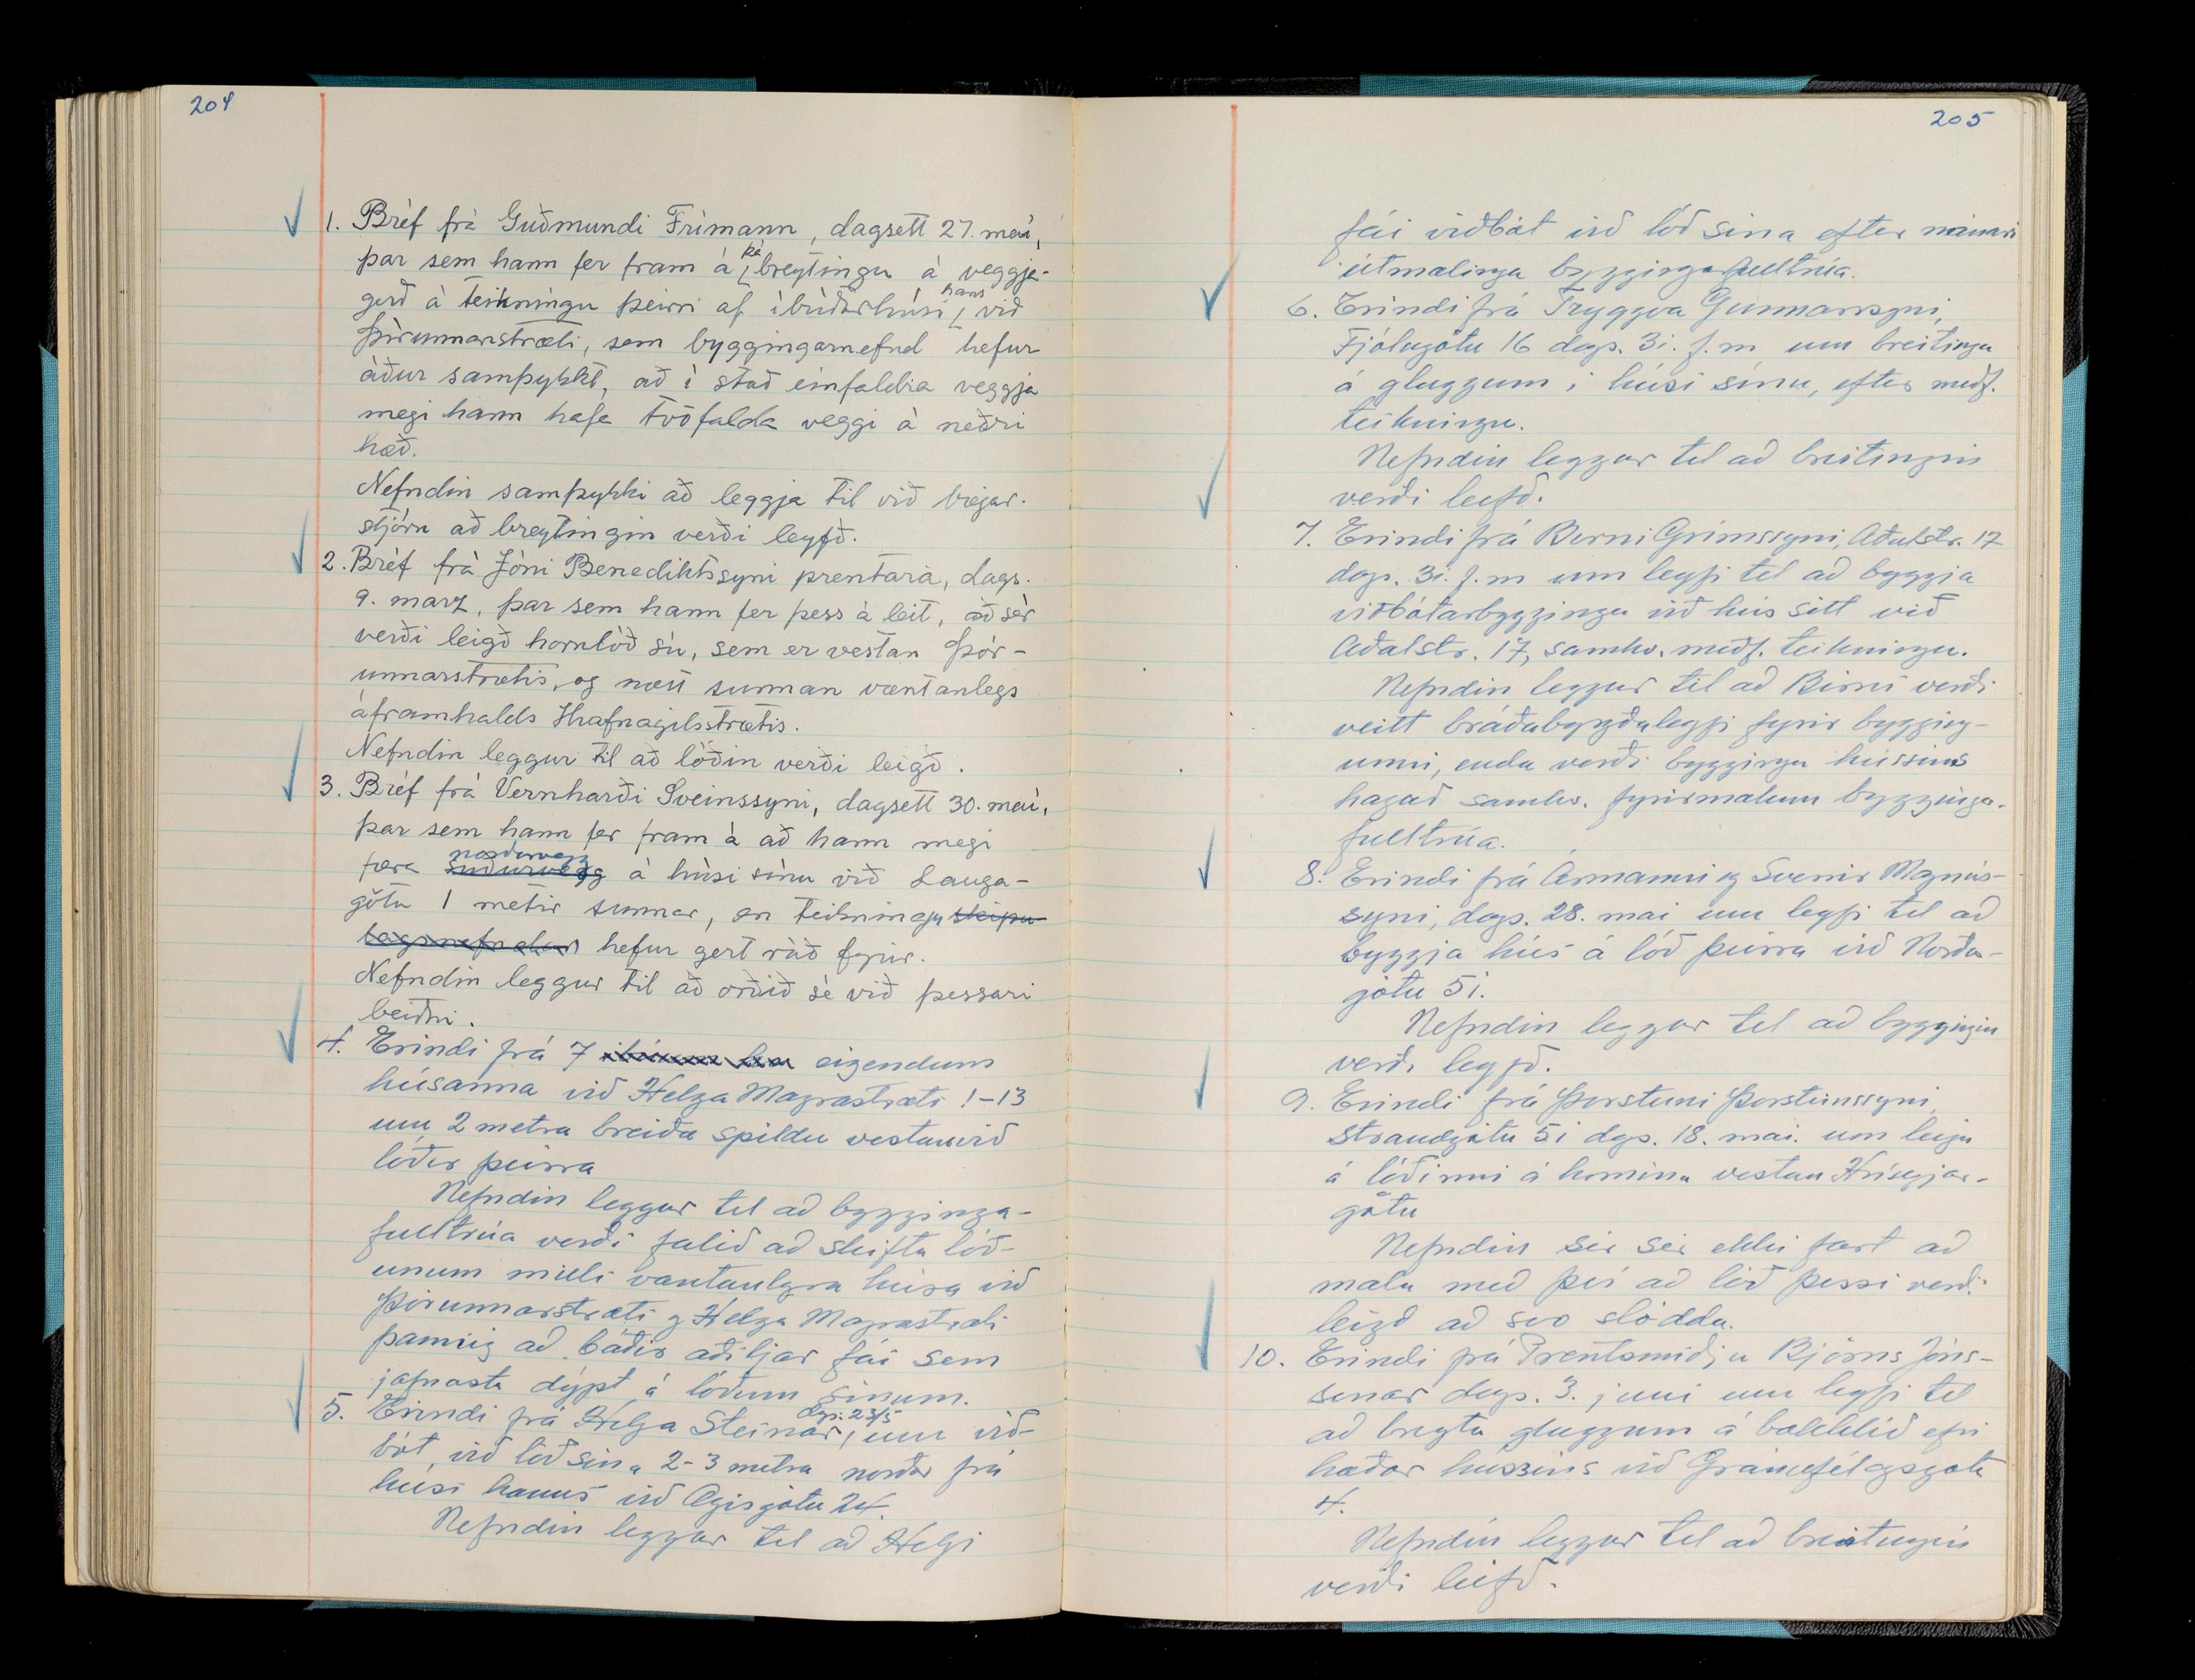 204
1. Bréf frá Guðmundi Frímann, dagsett 27. maí,
þar sem hann fer fram á þá breytingu á veggja-
gerð á teikningu þeirri af íbúðarhúsi hans við
Þórunnarstræti, sem byggingarnefnd hefur
áður samþykkt, að í stað einfaldra veggja
megi hann hafa tvöfalda veggi á neðri
hæð.
Nefndin samþykki að leggja til við bæjar-
stjórn að breytingin verði leyfð.
2. Bréf frá Jóni Benediktssyni prentara, dags.
9. marz, þar sem hann fer þess á leit, að sér
verði leigð hornlóð sú, sem er vestan Þór-
unnarstrætis, og næst sunnan væntanlegs
áframhalds Hrafnagilsstrætis.
Nefndin leggur til að lóðin verði leigð.
3. Bréf frá Vernharði Sveinssyni, dagsett 30. maí,
þar sem hann fer fram á að hann megi
norðurvegg
færa suðurvegg á húsi sínu við Lauga-
götu 1 metir sunnar, en teikning skipu
lagsnefndar hefur gert ráð fyrir.
Nefndin leggur til að orðið sé við þessari
beiðni.
4. Erindi frá 7 eigendum
húsanna við Helga Magrastræti 1-13
um 2 metra breiða spildu vestanvið
lóðir þeirra
Nefndin leggur til að bygginga-
fulltrúa verði falið að skifta lóð-
unum milli væntanlegra húsa við
Þórunnarstræti og Helga Magrastræti
þannig að báðir aðiljar fái sem
jafnasta dýpt á lóðum sínum.
5. Erindi frá Helga Steinar, dgs. 23/5 um við-
bót, við lóð sína 2-3 metra norður frá
húsi hanns við Ægisgötu 24.
Nefndin leggur til að Helgi
205
fái viðbót við lóð sína eftir nánari
útmælingu byggingafulltrúa.
6. Erindi frá Tryggva Gunnarssyni,
Fjólugötu 16 dags. 31. f.m. um breitingu
á gluggum í húsi sínu, eftir meðf.
teikningu.
Nefndin leggur til að breitingin
verði leifð.
7. Erindi frá Birni Grímssyni, Aðalstr. 17
dags. 31. f.m um leyfi til að byggja
viðbótarbyggingu við hús sitt við
Aðalstr. 17, samkv. meðf. teikningu.
Nefndin leggur til að Birni verði
veitt bráðabyrgðaleyfi fyrir bygging-
unni, enda verði byggingu hússins
hagað samkv. fyrirmælum bygginga-
fulltrúa.
8. Erindi frá Ármanni og Sverrir Magnús-
syni, dags. 28. mai um leyfi til að
byggja hús á lóð þeirra við Norður-
götu 51.
Nefndin leggur til að byggingin
verði leyfð.
9. Erindi frá Þorsteini Þorsteinssyni,
Strandgötu 51 dgs. 18. mai. um leigu
á lóðinni á horninu vestan Hríseyjar-
götu
Nefndin sér sér ekki fært að
mæla með því að lóð þessi verði
leigð að svo stöddu.
10. Erindi frá Prentsmiðju Björns Jóns-
sonar dags. 3. juni um leyfi til
að breyta gluggum á bakhlið efri
hæðar hússins við Gránufélagsgötu
4.
Nefndin leggur til að breitingin
verði leifð.